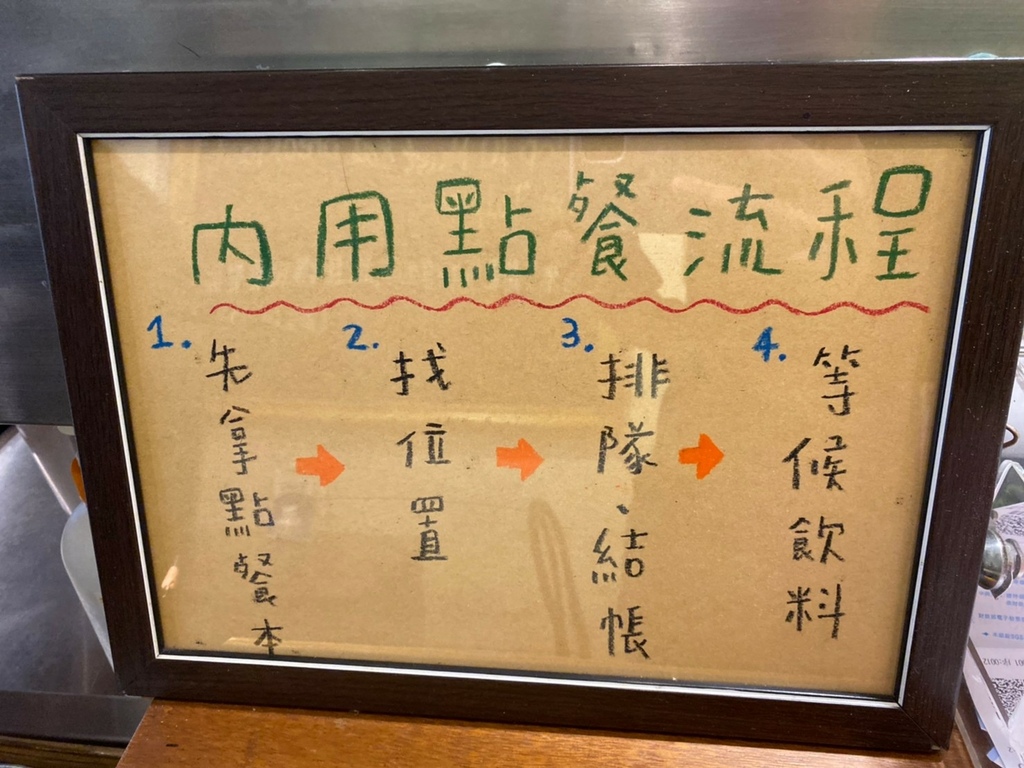 內用點餐流程
1. 先拿點餐本
2. 找位置
3. 排隊、結帳
4. 等候飲料